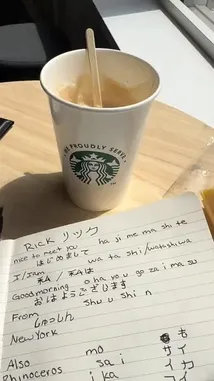 WE PROUDLY SERVE
RICK リック
nice to meet you
はじめまして ha ji me ma shi te
I/I am wa ta shi/watashiwa
私 / 私は
Good morning o ha yo u go za i ma su
おはようございます
From shu u shi n
しゅっしん
New York
Also mo も
Rhinoceros sai サイ
i ka イカ